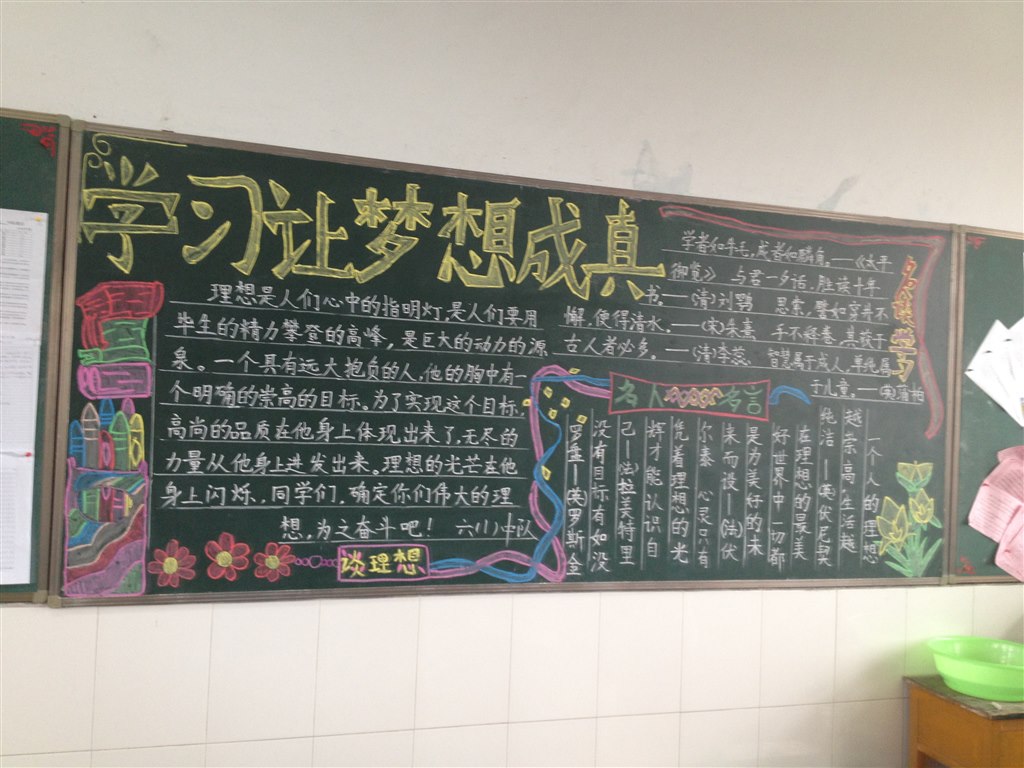 学习让梦想成真
理想是人们心中的指明灯,是人们要用
毕生的精力攀登的高峰,是巨大的动力的源
泉。一个具有远大抱负的人,他的胸中有一
个明确的崇高的目标。为了实现这个目标,
高尚的品质在他身上体现出来了,无尽的
力量从他身上迸发出来。理想的光芒在他
身上闪烁.同学们,确定你们伟大的理
想,为之奋斗吧! 六(1)中队
谈理想
学者如牛毛,成者如麟角。——《太平
御览》 与君一夕话,胜读十年
书。——(清)刘鹗 思索,譬如穿井不
懈,便得清水。——(宋)朱熹 手不释卷,其获于
古人者必多。——(清)李蕊 智慧属于成人,单纯属
于儿童。——(英)蒲柏
名人名言
一个人的理想
越崇高,生活越
纯洁——(英)伏尼契
在理想的最美
好世界中一切都
是为美好的未
来而设——(法)伏
尔泰 心灵只有
凭着理想的光
辉才能认识自
己——(法)拉美特里
没有目标有如没
罗盘——(英)罗斯金